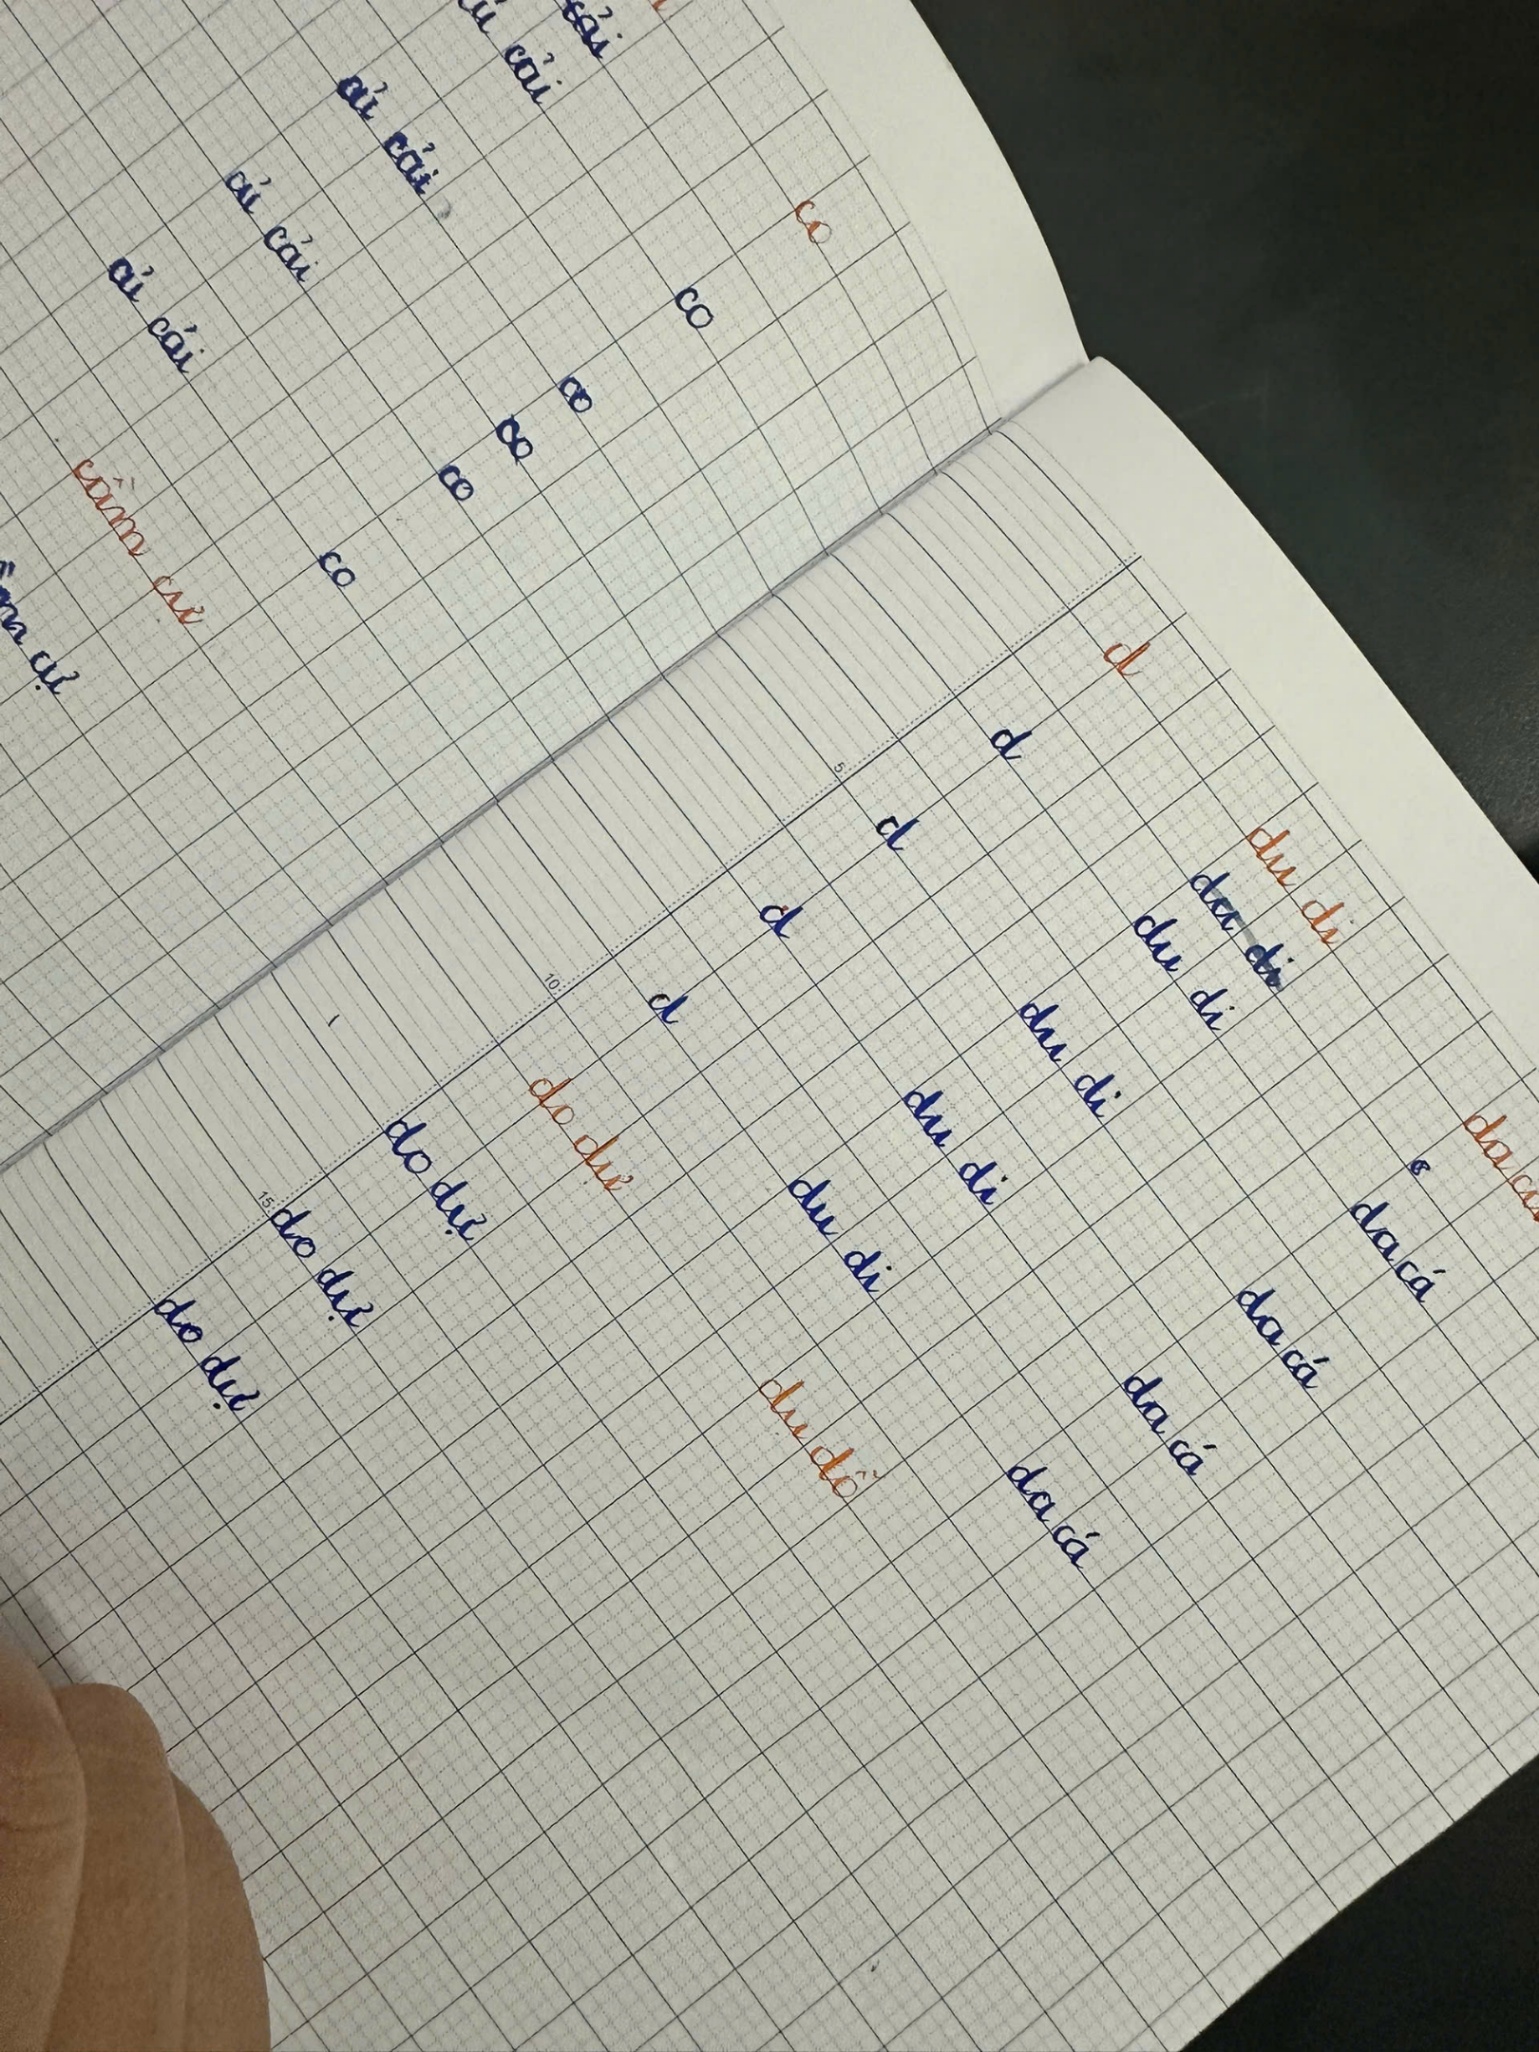 cải
củ cải
củ cải
củ cải
củ cải
cầm cự
cự
co
co
co
co
co
co
d
d
5
d
d
10
d
du di
du di
du di
du di
du di
du di
da cá
da cá
da cá
da cá
do dự
do dự
15
do dự
do dự
dụ dỗ